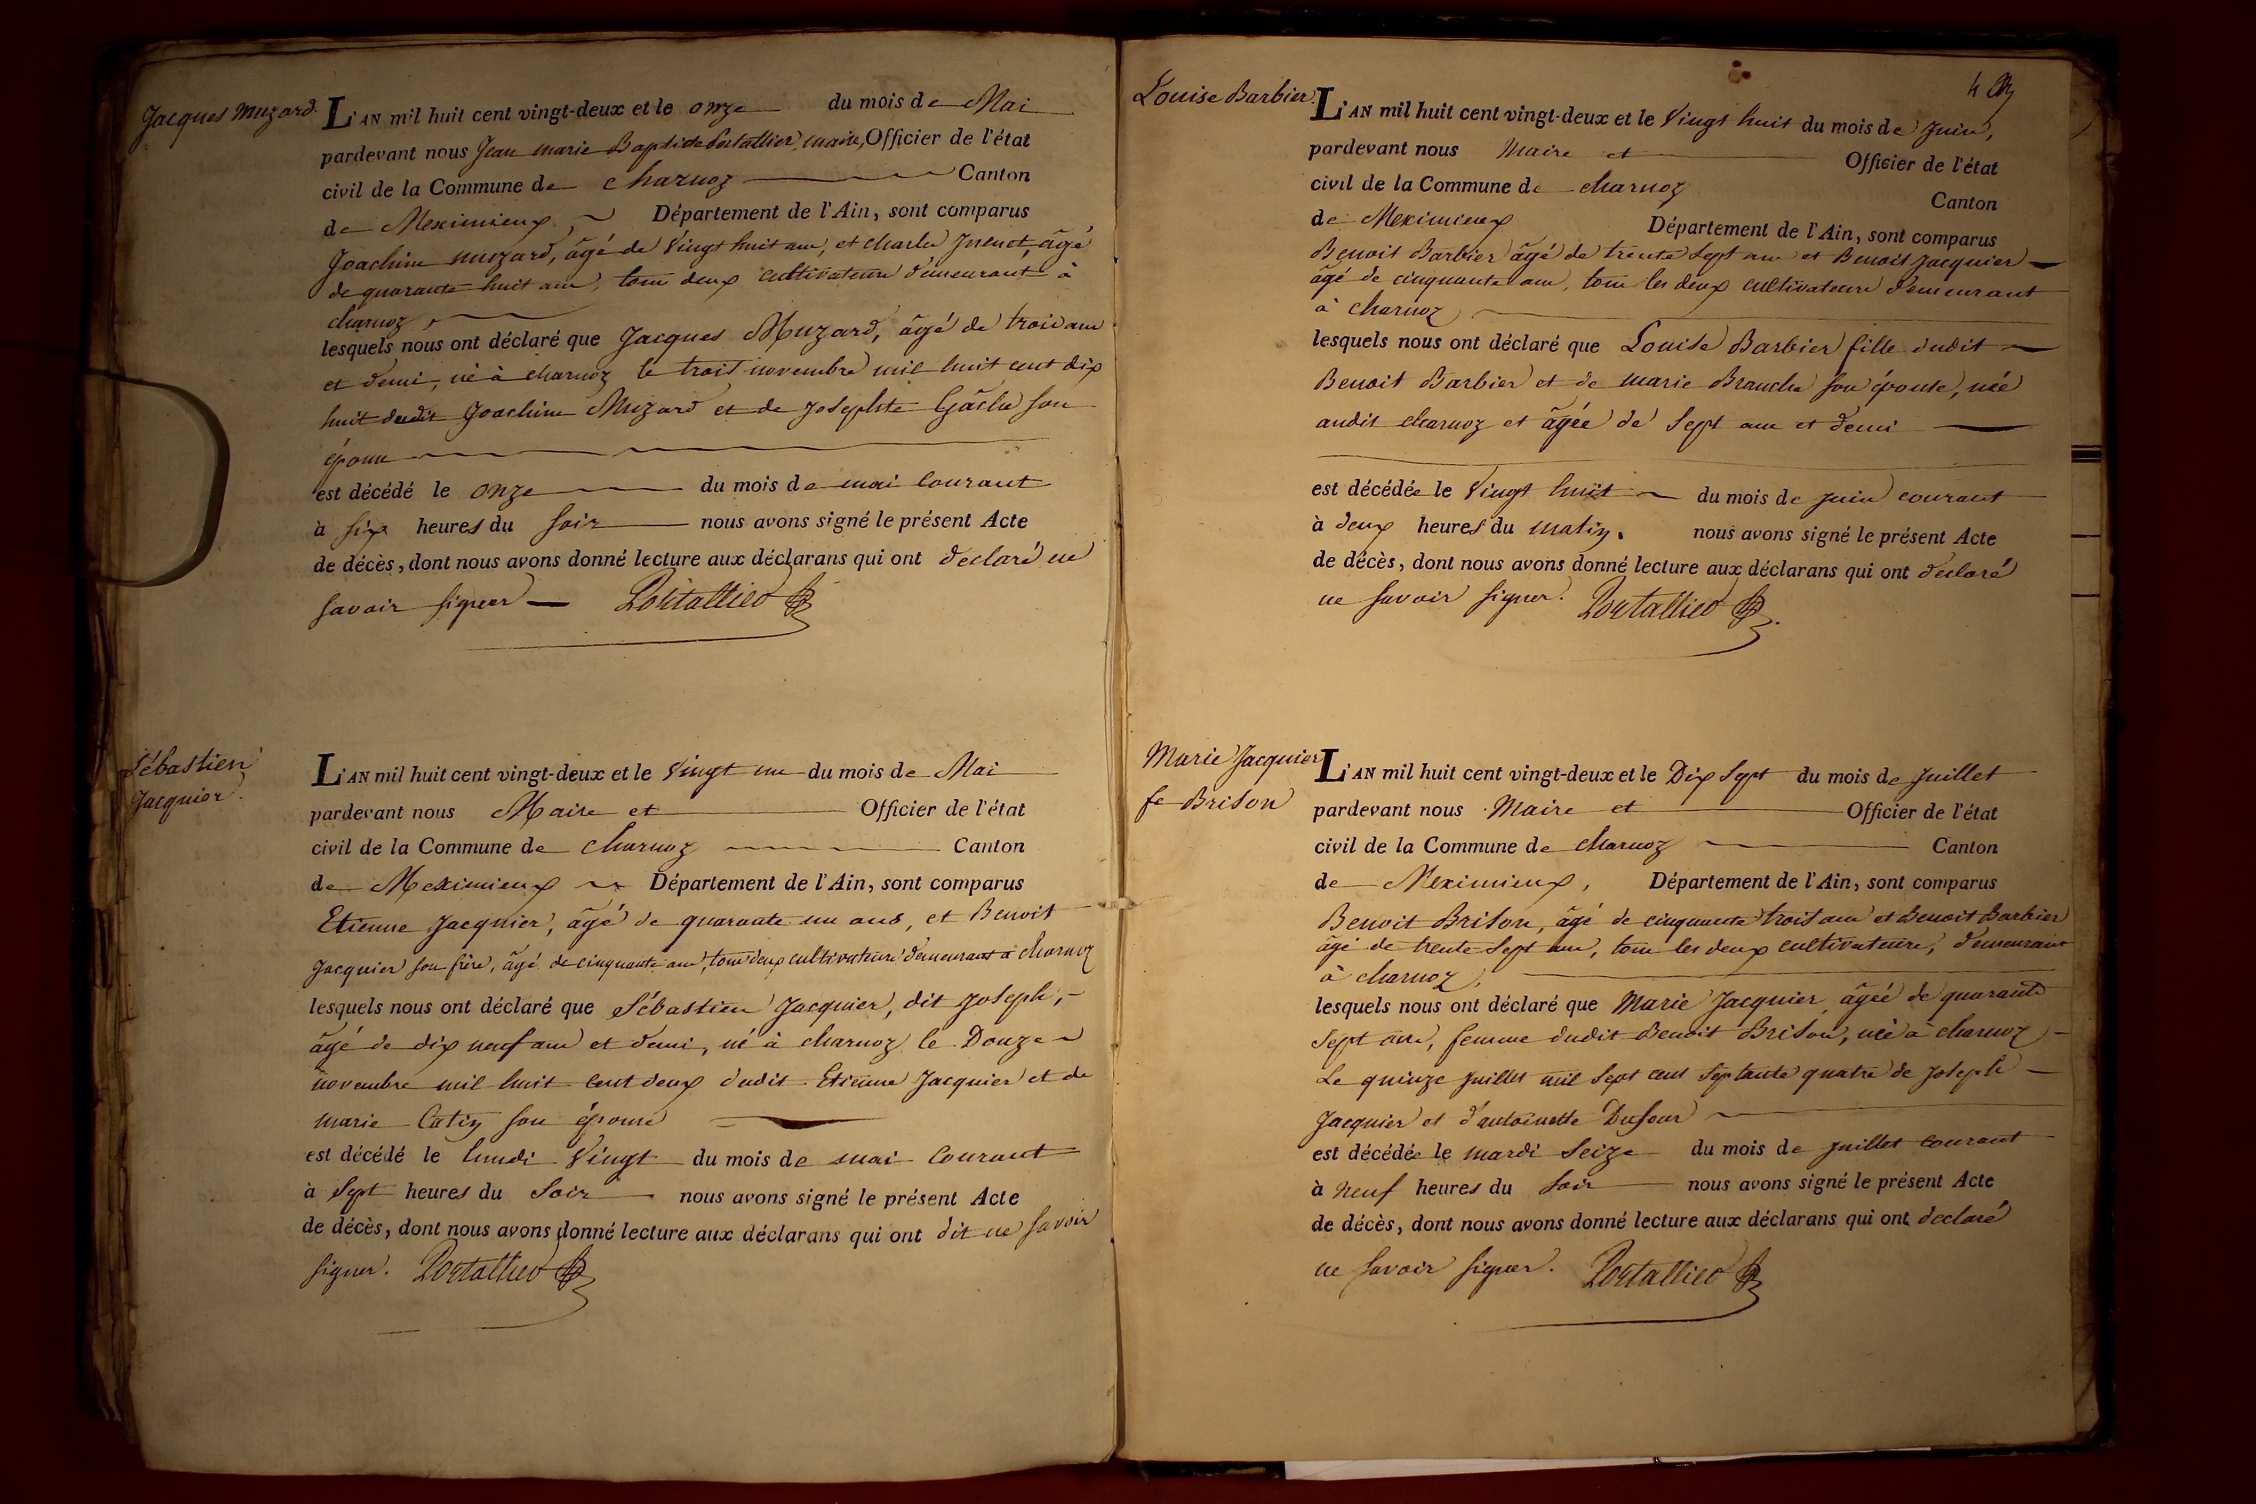 Jacques Muzard.
L'AN mil huit cent vingt-deux et le onze du mois de Mai
pardevant nous Jean marie Baptiste Portallier, maire, Officier de l'état
civil de la Commune de charnoz Canton
de Meximieux Département de l'Ain, sont comparus
Joachim muzard, âgé de vingt huit ans, et charles âgé
de quarante huit ans, tous deux cultivateurs demeurant à
charnoz,
lesquels nous ont déclaré que Jacques Muzard, âgé de trois ans
et demi, né à charnoz le trois novembre mil huit cent dix
huit dudit Joachim Muzard et de Josephte Gâche son
épouse
est décédé le onze du mois de mai courant
à six heures du soir nous avons signé le présent Acte
de décès, dont nous avons donné lecture aux déclarans qui ont déclaré ne
savoir signer Portallier
Sébastien
Jacquier.
L'AN mil huit cent vingt-deux et le vingt un du mois de Mai
pardevant nous Maire et Officier de l'état
civil de la Commune de charnoz Canton
de Meximieux Département de l'Ain, sont comparus
Etienne Jacquier, âgé de quarante un ans, et Benoit
Jacquier son frère, âgé de cinquante ans, tous deux cultivateurs demeurant à charnoz
lesquels nous ont déclaré que Sébastien Jacquier, dit Joseph,
âgé de dix neuf ans et demi, né à charnoz le Douze
novembre mil huit cent deux dudit Etienne Jacquier et de
marie Catin son épouse
est décédé le lundi vingt du mois de mai courant
à sept heures du soir nous avons signé le présent Acte
de décès, dont nous avons donné lecture aux déclarans qui ont dit ne savoir
signer. Portallier
4
Louise Barbier.
L'AN mil huit cent vingt-deux et le vingt huit du mois de juin,
pardevant nous Maire et Officier de l'état
civil de la Commune de charnoz Canton
de Meximieux Département de l'Ain, sont comparus
Benoit Barbier âgé de trente sept ans et Benoit Jacquier
âgé de cinquante ans, tous les deux cultivateurs demeurant
à charnoz
lesquels nous ont déclaré que Louise Barbier fille dudit
Benoit Barbier et de marie Branche son épouse, née
audit charnoz et âgée de sept ans et demi
est décédée le vingt huit du mois de juin courant
à deux heures du matin. nous avons signé le présent Acte
de décès, dont nous avons donné lecture aux déclarans qui ont déclaré
ne savoir signer. Portallier
Marie Jacquier
fe Brison
L'AN mil huit cent vingt-deux et le Dix sept du mois de juillet
pardevant nous Maire et Officier de l'état
civil de la Commune de charnoz Canton
de Meximieux, Département de l'Ain, sont comparus
Benoit Brison, âgé de cinquante trois ans et Benoit Barbier
âgé de trente sept ans, tous les deux cultivateurs, demeurant
à charnoz,
lesquels nous ont déclaré que Marie Jacquier, âgée de quarante
sept ans, femme dudit Benoit Brison, née à charnoz
Le quinze juillet mil sept cent septante quatre de Joseph
Jacquier et d'antoinette Dufour
est décédée le mardi seize du mois de juillet courant
à neuf heures du soir nous avons signé le présent Acte
de décès, dont nous avons donné lecture aux déclarans qui ont declaré
ne savoir signer. Portallier